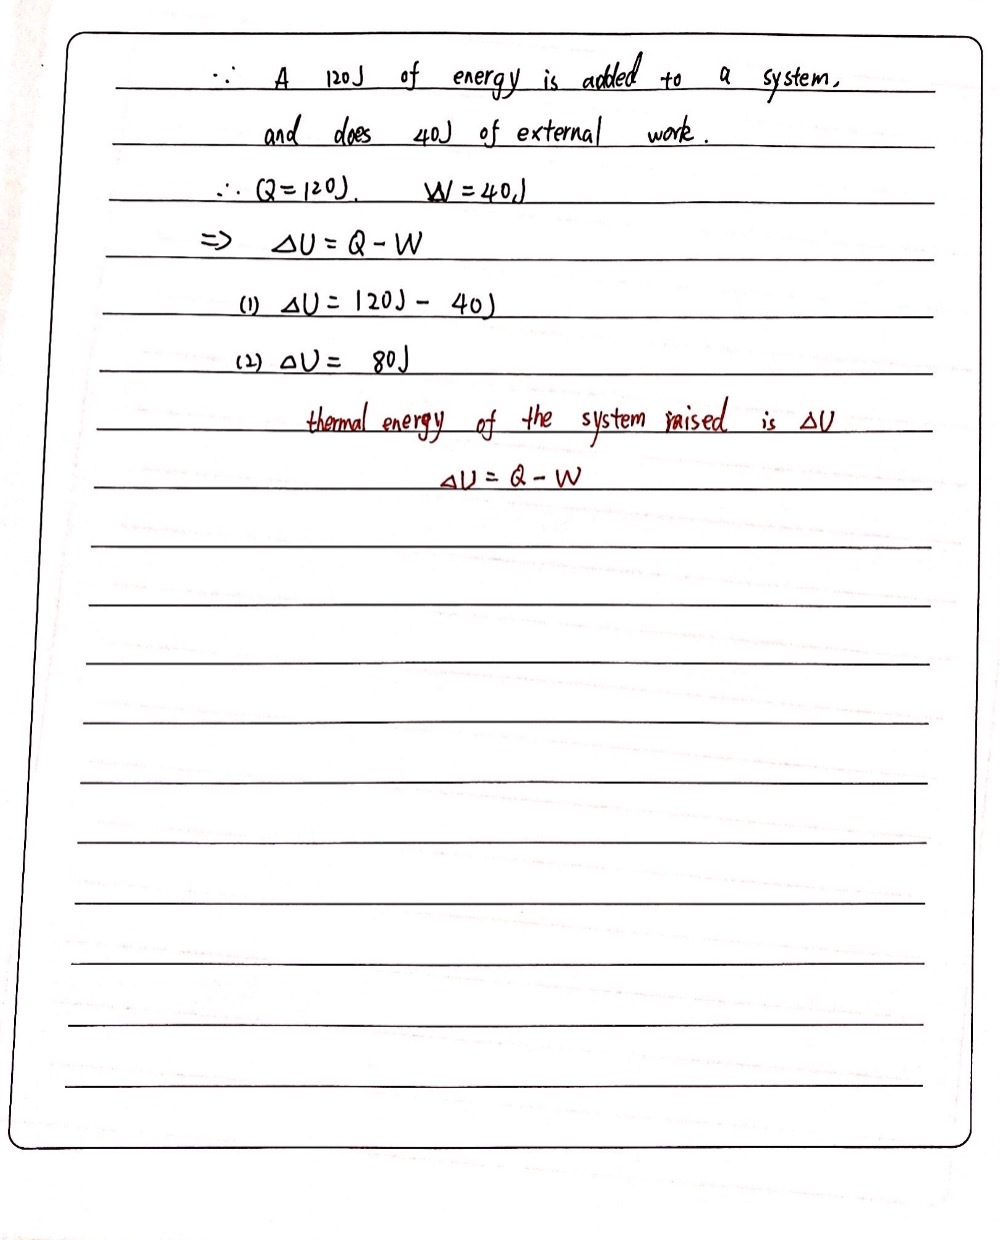 ∵ A 120J of energy is added to a system,
and does 40J of external work.
∴ Q=120J. W=40J
⇒ ΔU = Q - W
(1) ΔU = 120J - 40J
(2) ΔU = 80J
thermal energy of the system raised is ΔU
ΔU = Q - W